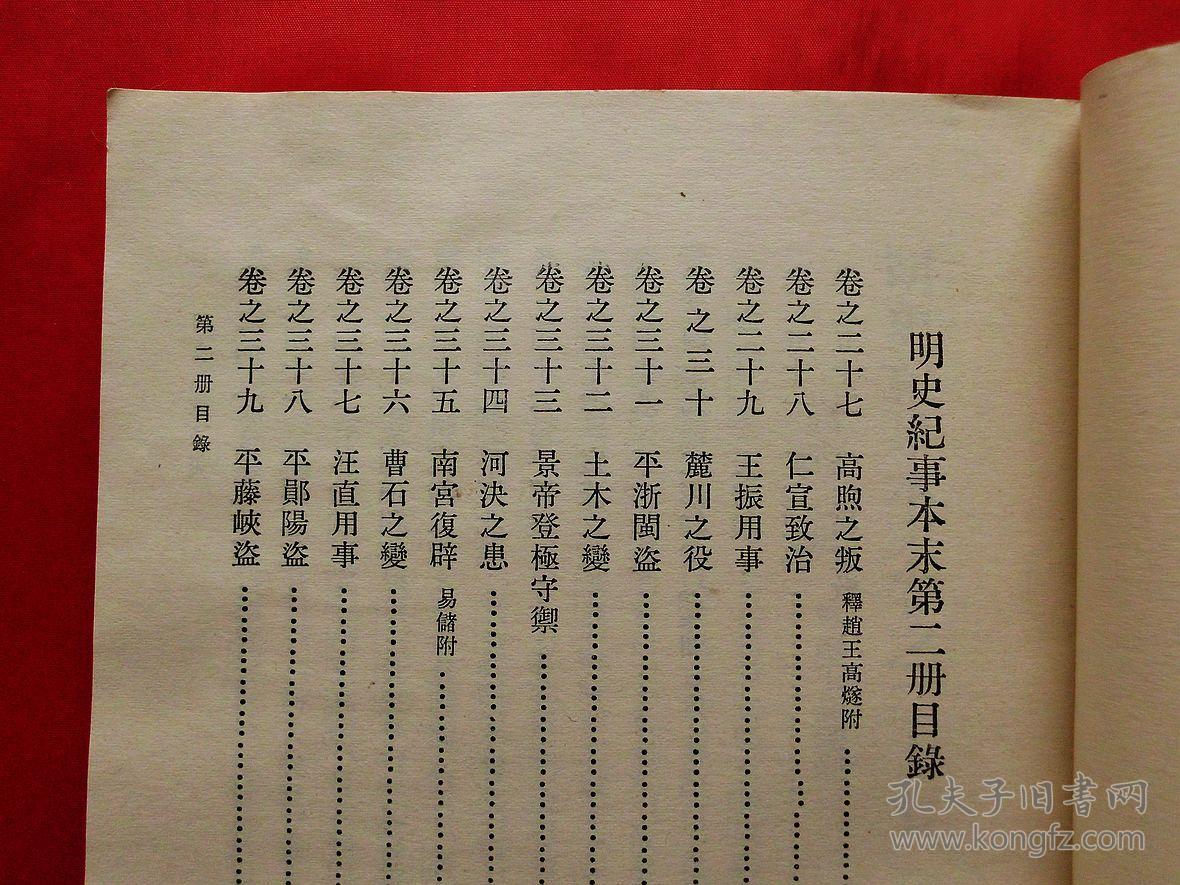 明史紀事本末第二册目錄
卷之二十七 高煦之叛 釋趙王高燧附
卷之二十八 仁宣致治
卷之二十九 王振用事
卷之三十 麓川之役
卷之三十一 平浙閩盜
卷之三十二 土木之變
卷之三十三 景帝登極守禦
卷之三十四 河決之患
卷之三十五 南宮復辟 易儲附
卷之三十六 曹石之變
卷之三十七 汪直用事
卷之三十八 平鄖陽盜
卷之三十九 平藤峽盜
第二册目錄
孔夫子旧书网
www.kongfz.com